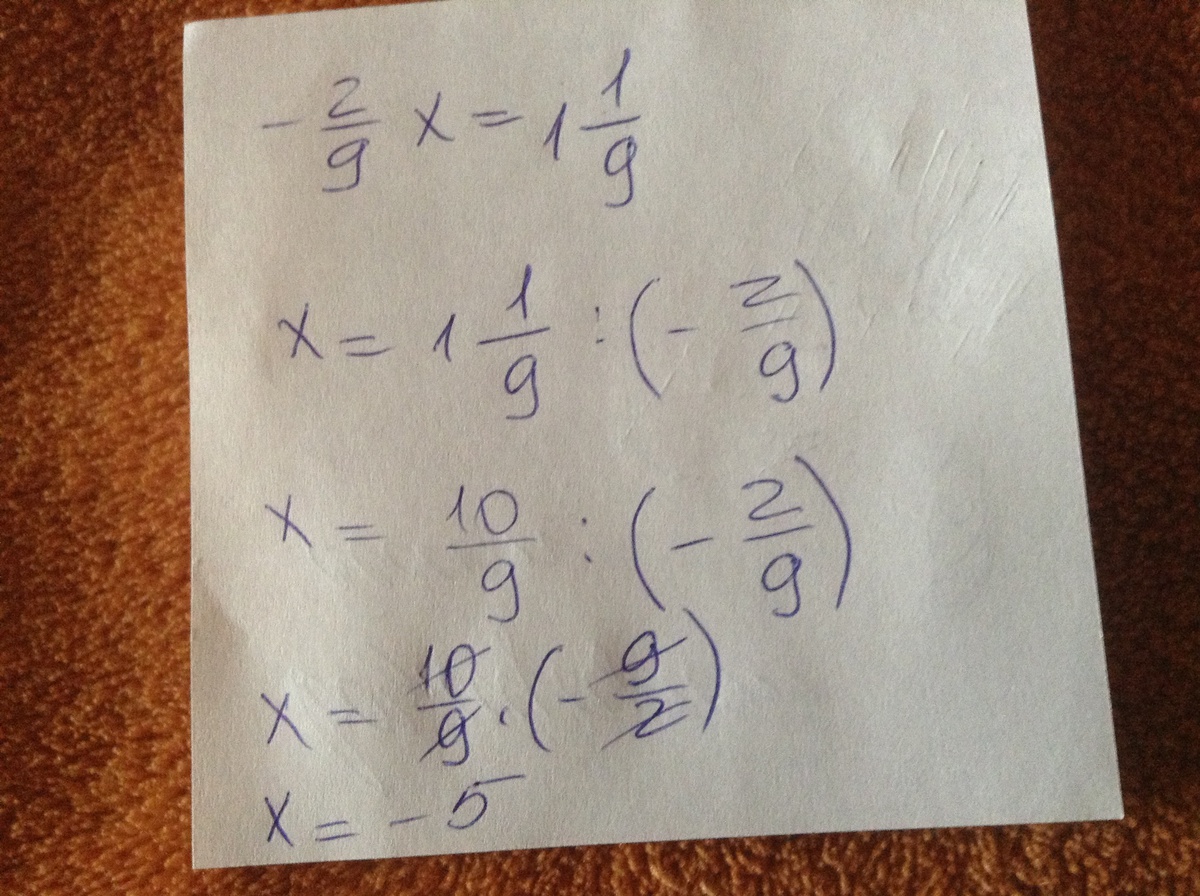 - 2/9 x = 1 1/9
x = 1 1/9 : (- 2/9)
x = 10/9 : (- 2/9)
x = 10/9 · (- 9/2)
x = - 5